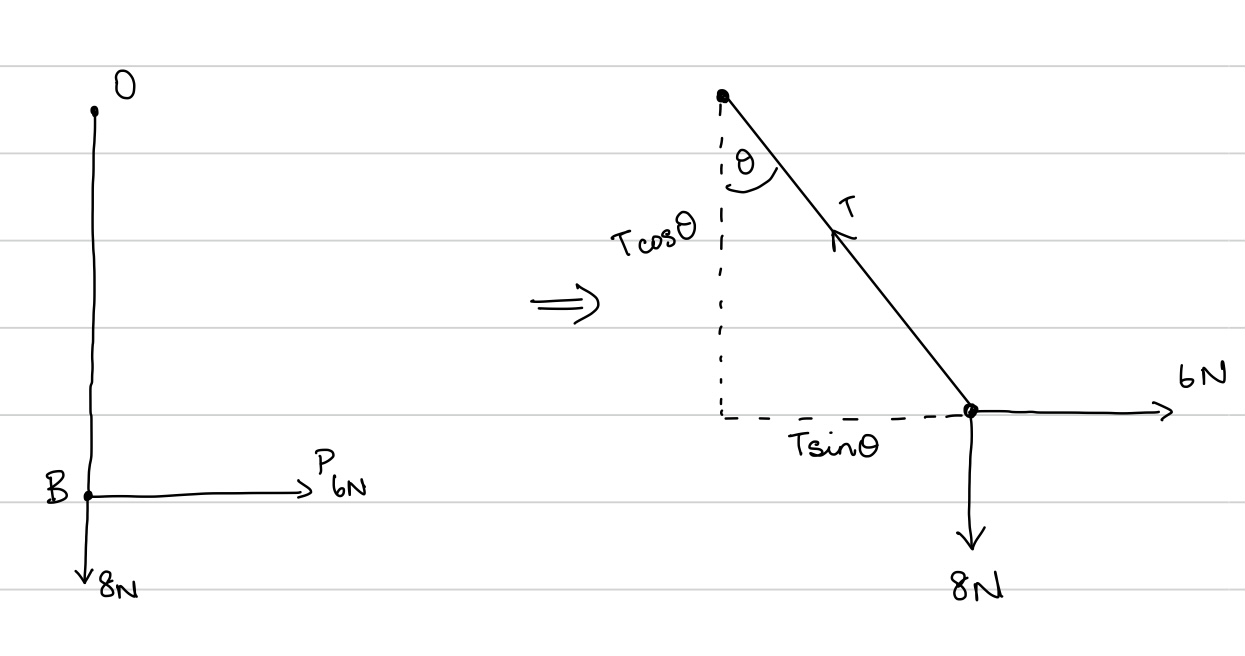 O
B
P
6N
8N
⇒
θ
T
Tcosθ
Tsinθ
6N
8N